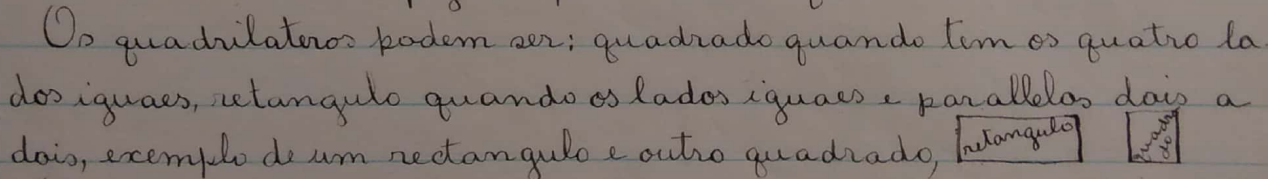 Os quadrilateros podem ser: quadrado quando tem os quatro la
dos iguaes, retangulo quando os lados iguaes e parallelos dois a
dois, exemplo de um rectangulo e outro quadrado, retangulo quadra
do